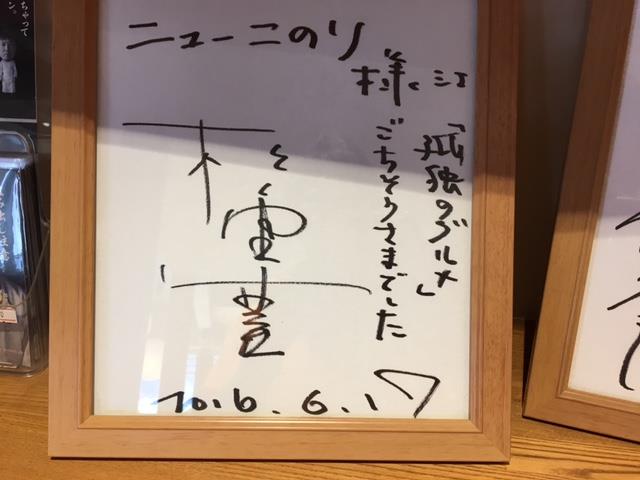 ニューこのり
様江
「孤独のグルメ」
ごちそうさまでした
松重豊
2016.6.17
ちゃって
ン。